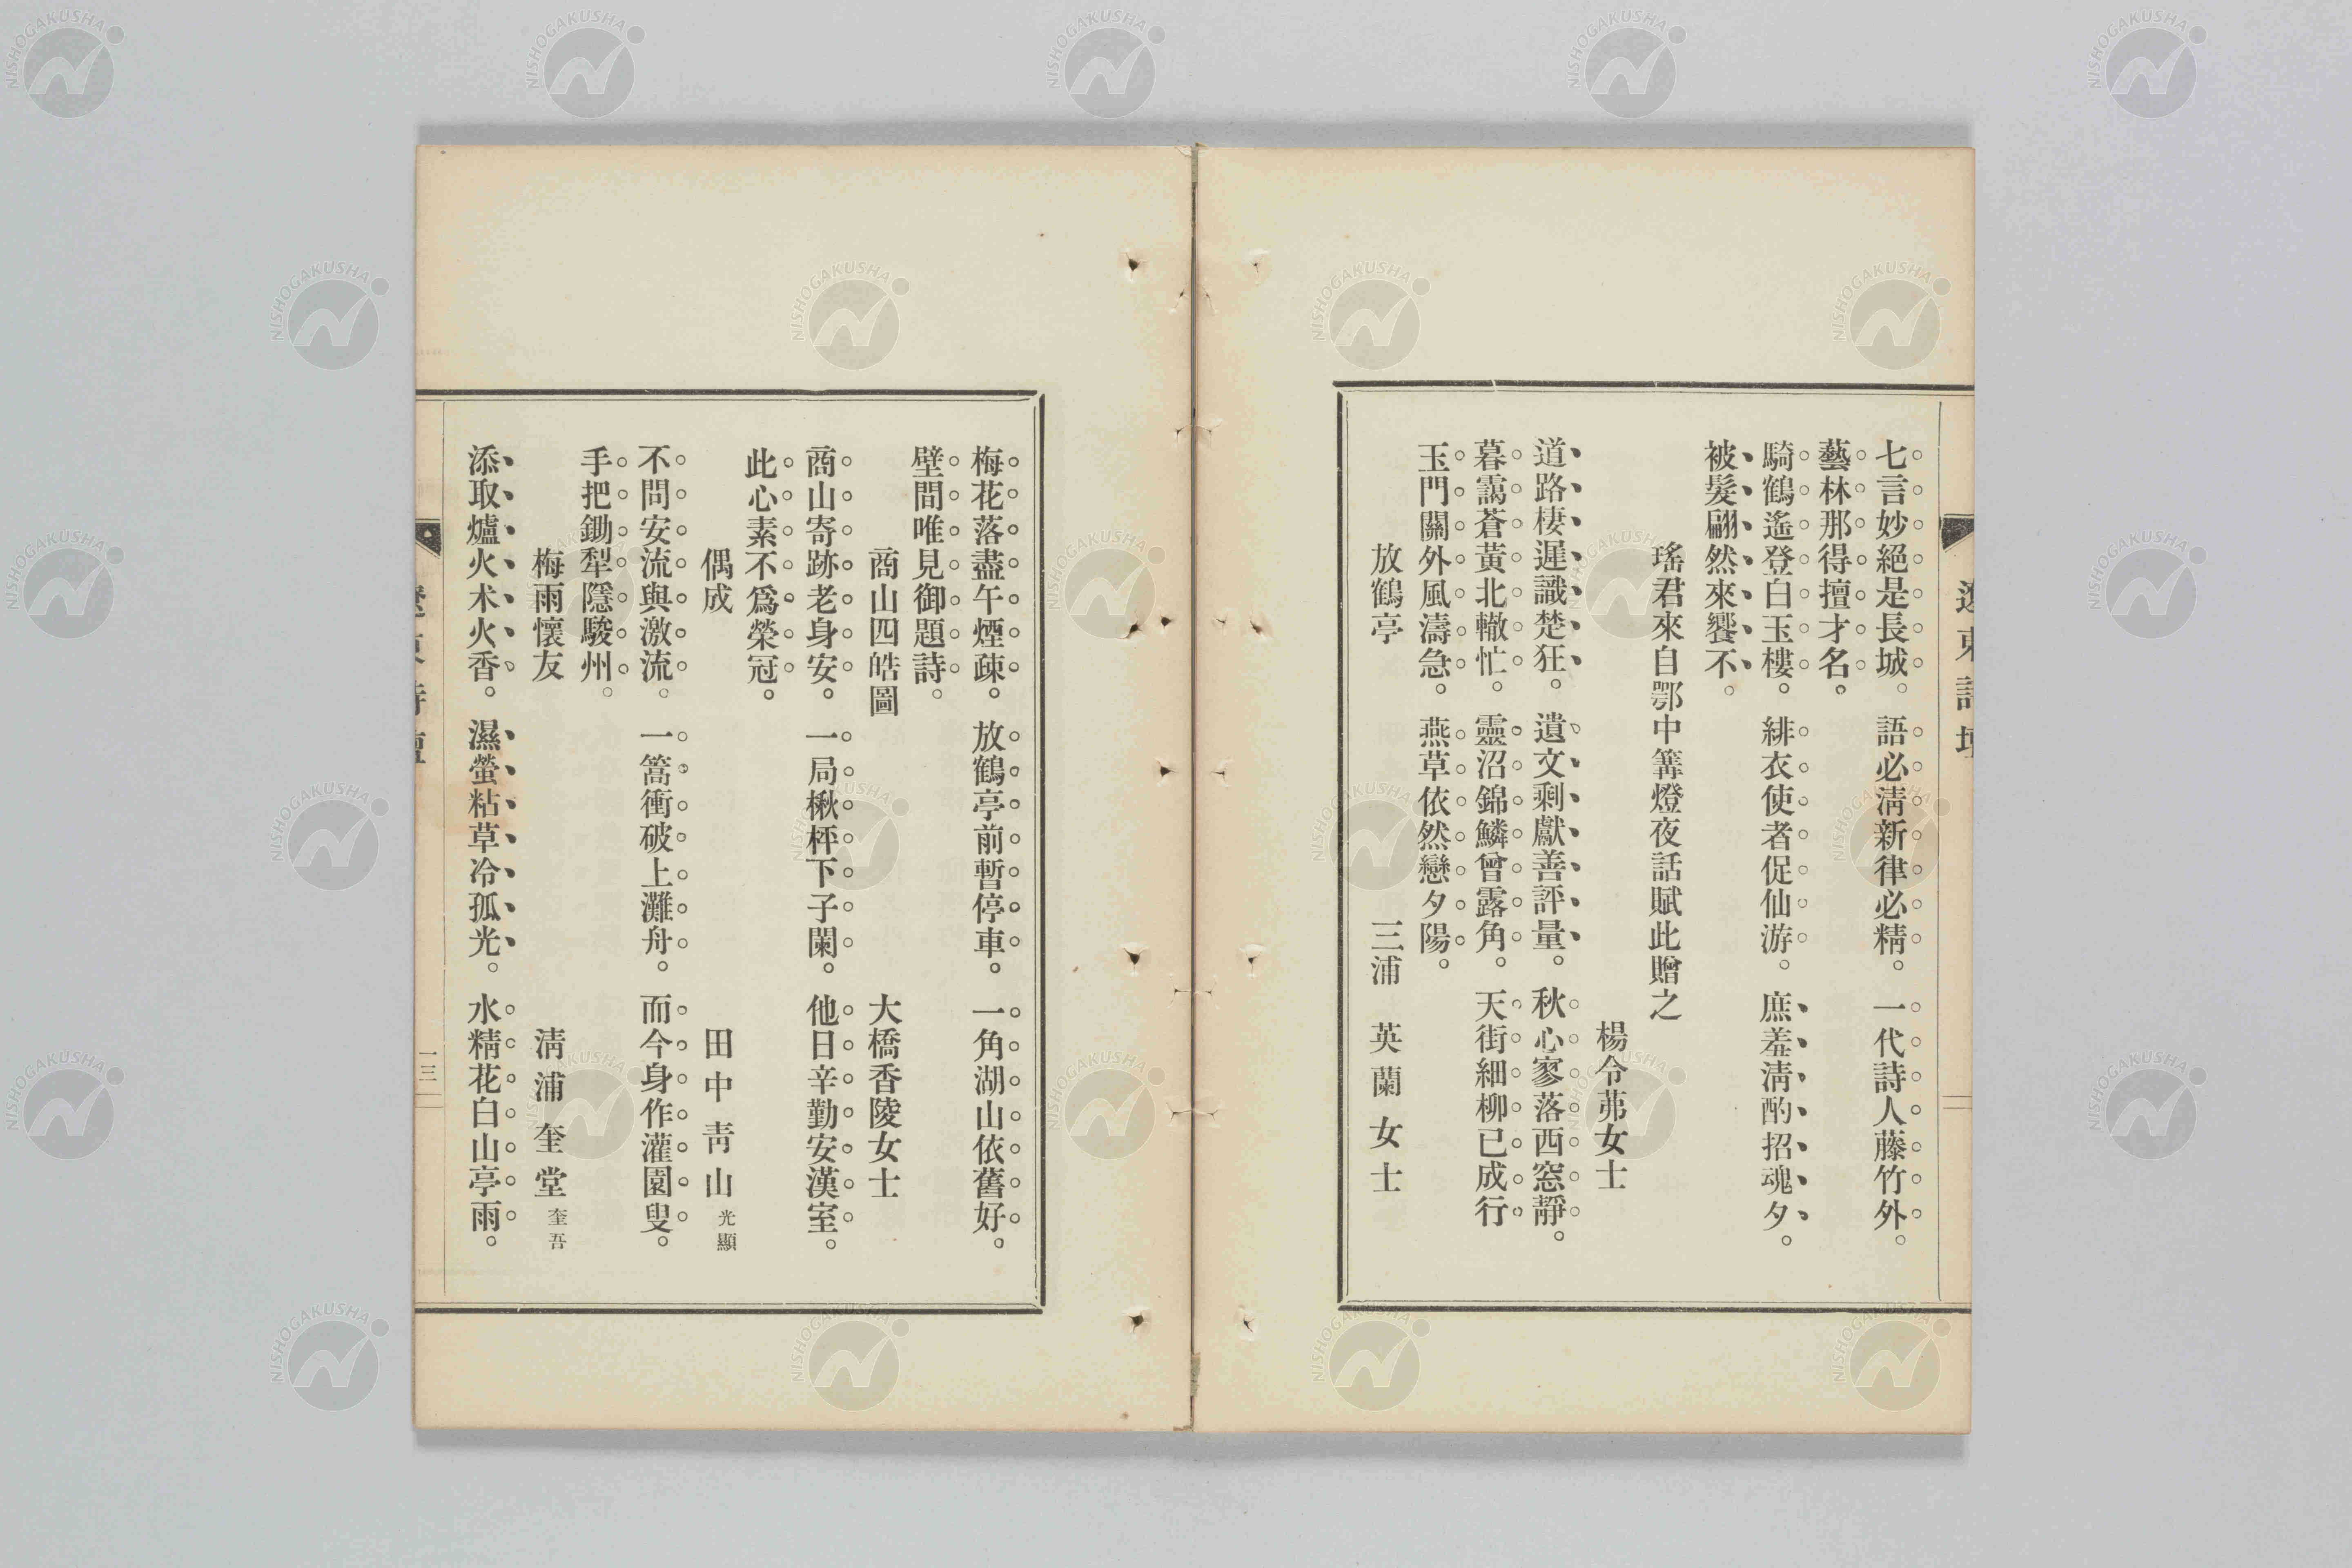 七言妙絕是長城。語必淸新律必精。一代詩人藤竹外。
藝林那得擅才名。
騎鶴遙登白玉樓。緋衣使者促仙游。庶羞淸酌招魂夕。
被髮翩然來饗不。
瑤君來自鄂中篝燈夜話賦此贈之
楊令茀女士
道路棲遲識楚狂。遺文剩獻善評量。秋心寥落西窓靜。
暮靄蒼黃北轍忙。靈沼錦鱗曾露角。天街細柳已成行
玉門關外風濤急。燕草依然戀夕陽。
放鶴亭 三浦英蘭女士
梅花落盡午煙疎。放鶴亭前暫停車。一角湖山依舊好。
壁間唯見御題詩。
商山四皓圖 大橋香陵女士
商山寄跡老身安。一局楸枰下子闌。他日辛勤安漢室。
此心素不爲榮冠。
偶成 田中靑山 光顯
不問安流與激流。一篙衝破上灘舟。而今身作灌園叟。
手把鋤犁隱駿州。
梅雨懷友 淸浦奎堂 奎吾
添取爐火朮火香。濕螢粘草冷孤光。水精花白山亭雨。
一三
NISHOGAKUSHA